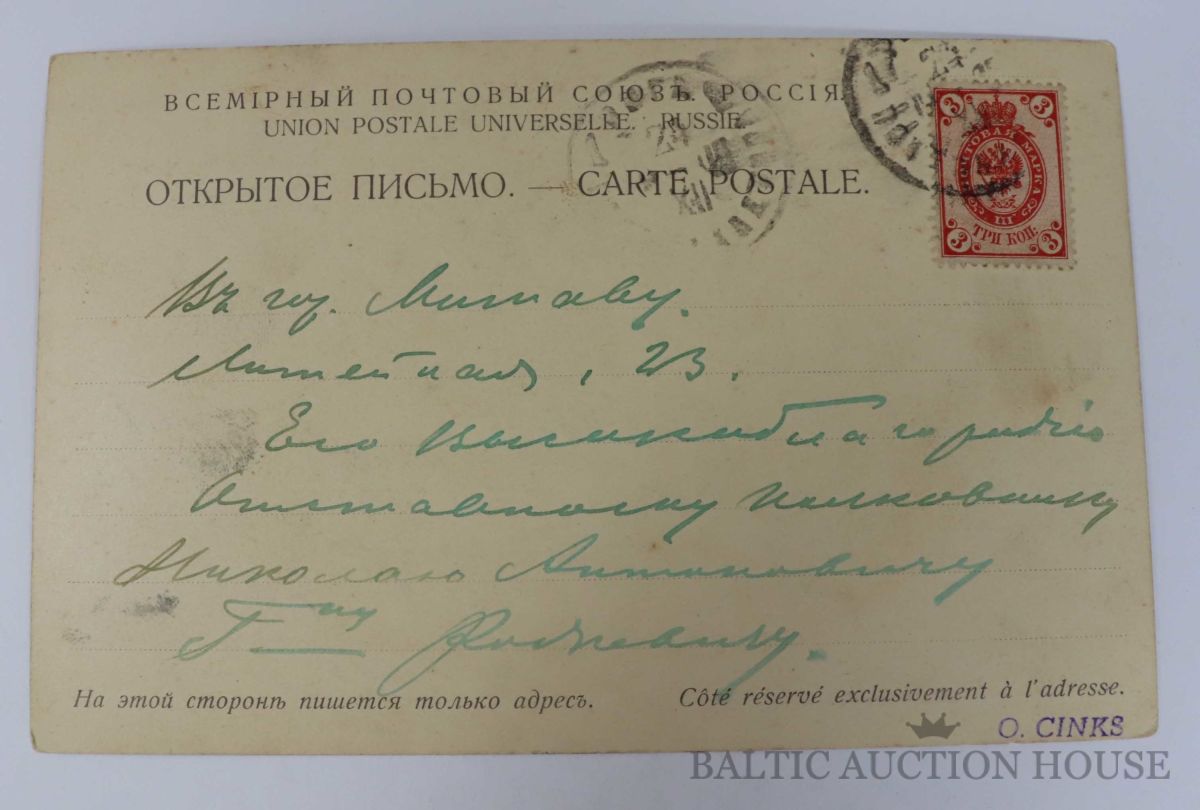 ВСЕМІРНЫЙ ПОЧТОВЫЙ СОЮЗЪ. РОССІЯ.
UNION POSTALE UNIVERSELLE. RUSSIE.
ОТКРЫТОЕ ПИСЬМО. — CARTE POSTALE.
3 3
ПОЧТОВАЯ МАРКА
III
ТРИ КОП:
3 3
Въ гор. Митаву.
Литейная, 23.
Его Высокоблагородію
Отставному Полковнику
Николаю Антоновичу
Г-ну
На этой сторонѣ пишется только адресъ.
Côté réservé exclusivement à l'adresse.
O. CINKS
BALTIC AUCTION HOUSE